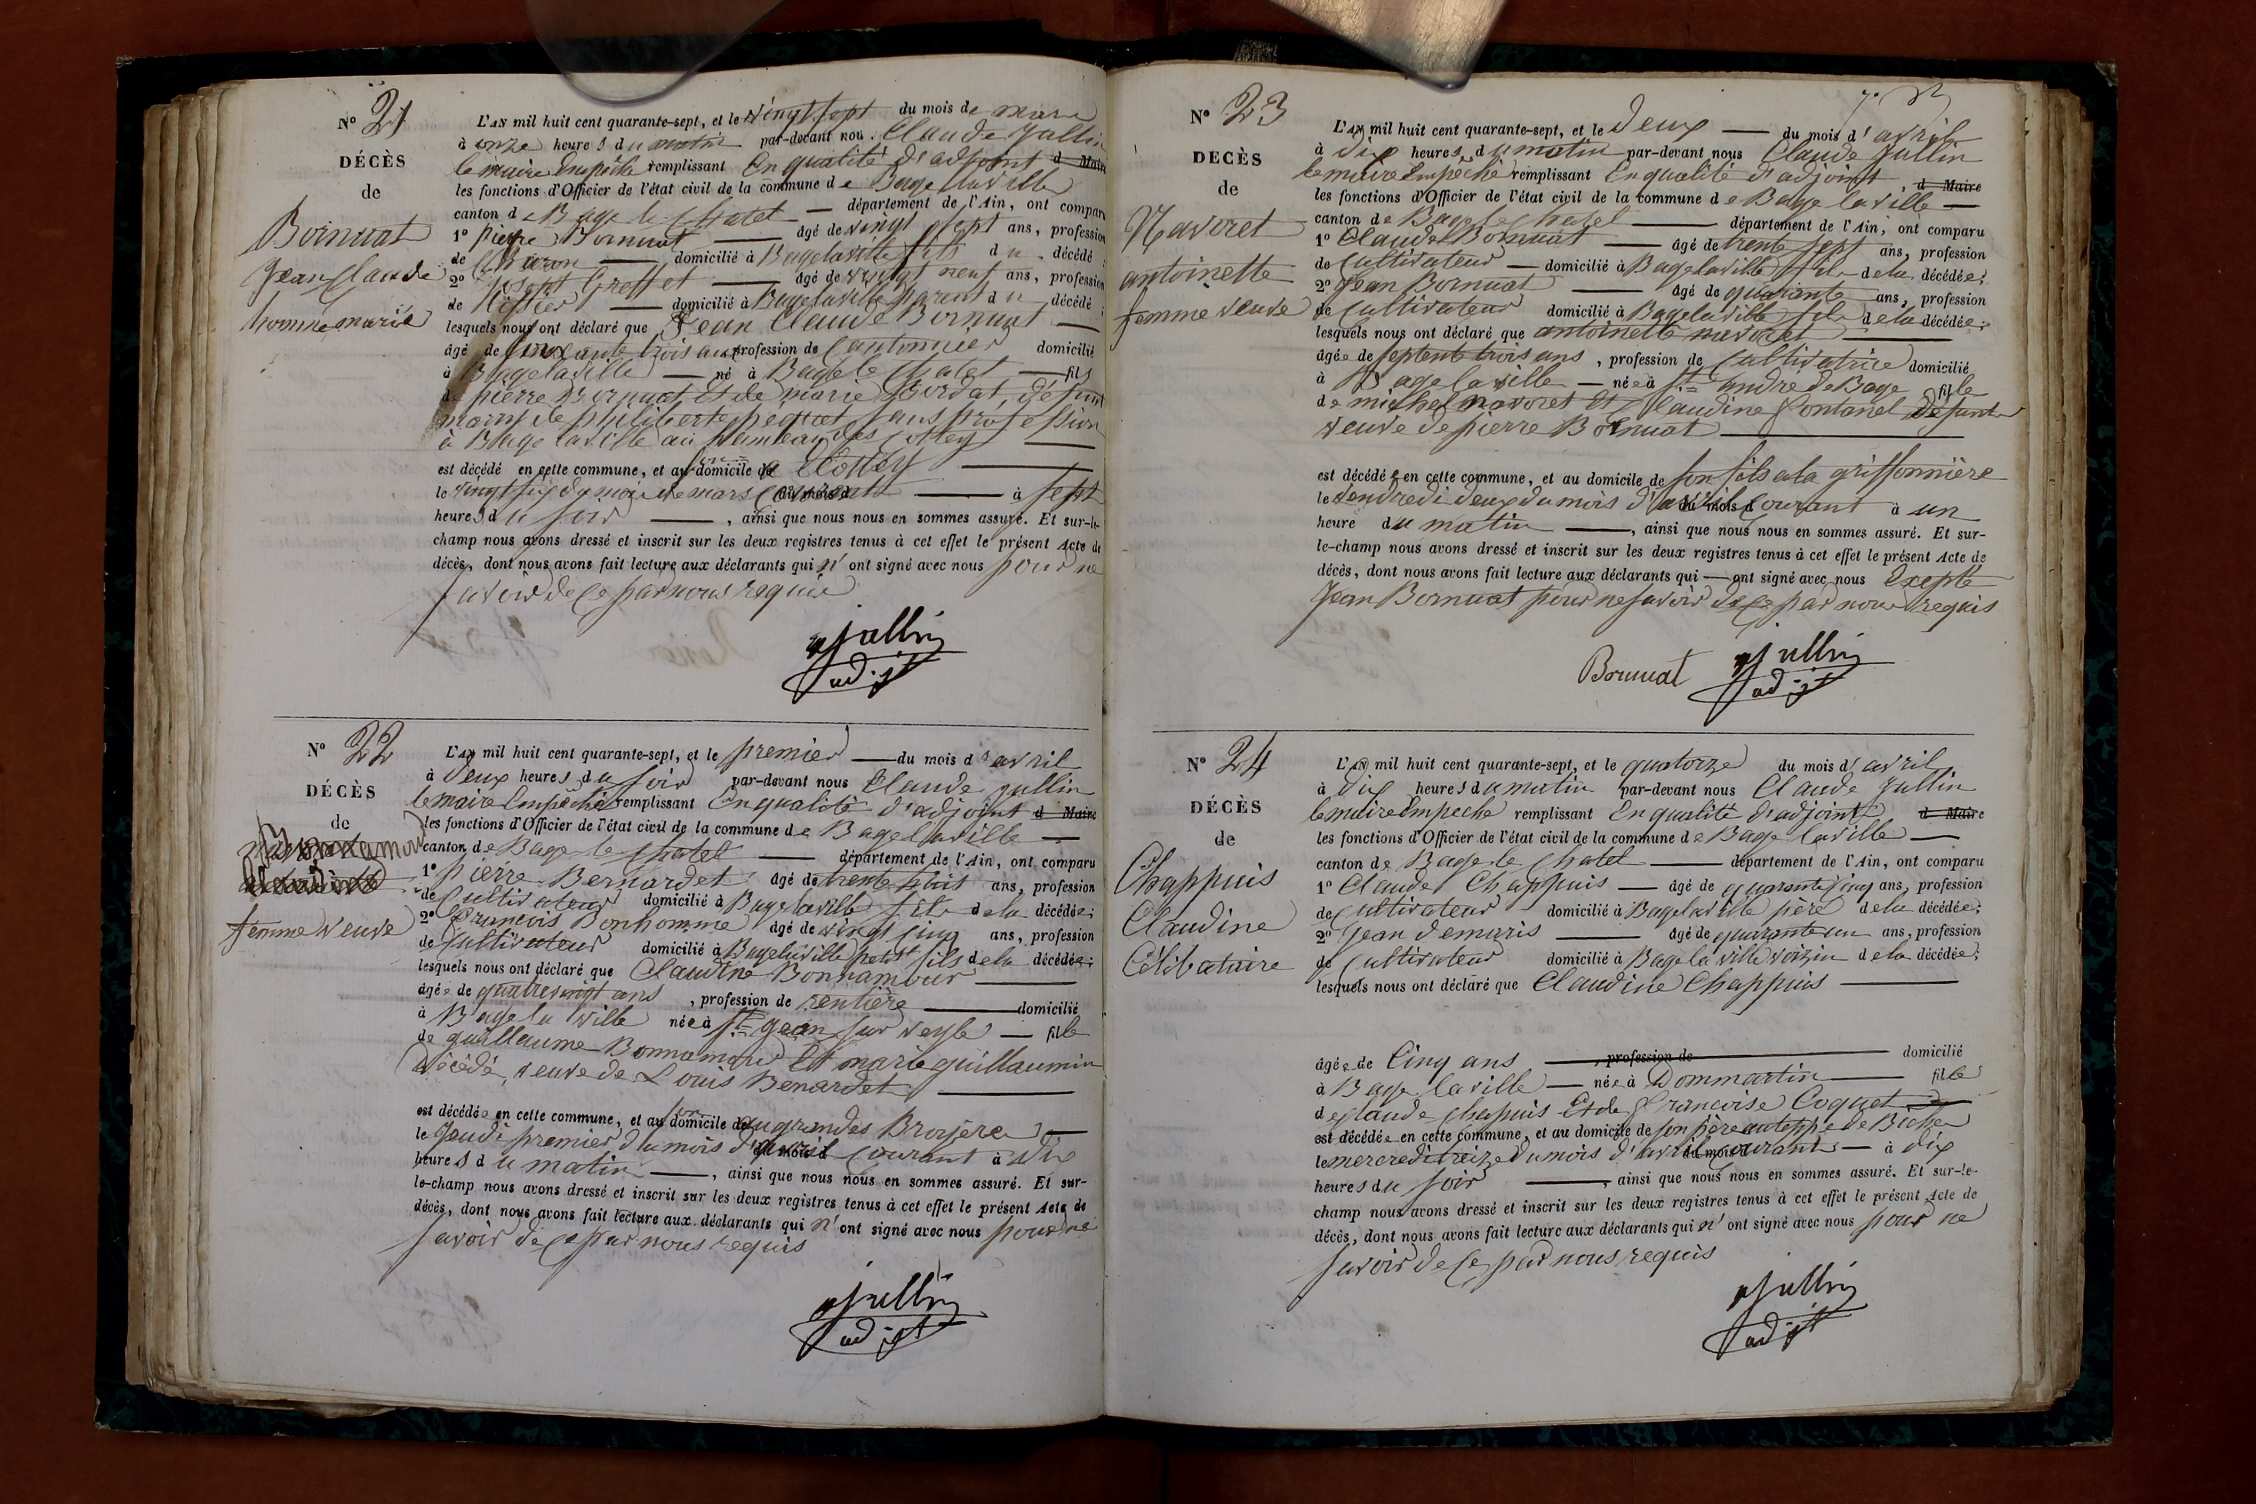 N° 21
DÉCÈS
de
Bornuat
Jean Claude
homme marié
L'AN mil huit cent quarante-sept, et le vingt sept du mois de mars
à onze heures du matin par-devant nou Claude Jullin
le maire Empêché remplissant En qualité d'adjoint d Maire
les fonctions d'Officier de l'état civil de la commune de Bage laville
canton de Bage le Chatel — département de l'Ain, ont comparu
1° pierre Bornuat — âgé de vingt sept ans, profession
de — domicilié à Bagelaville fils du décédé
2° Joseph Greffet — âgé de vingt neuf ans, profession
de — domicilié à Bagelaville parent du décédé ;
lesquels nous ont déclaré que Jean Claude Bornuat —
âgé de soixante trois ans profession de Cantonnier domicilié
à Bagelaville — né à Bage le Chatel — fils
de pierre Bornuat et de marie défunt
mary de philiberte pequet sans profession
à Bage laville au hameau des
est décédé en cette commune, et au domicile de
le vingt six du mois de mars Courant du mois d — à sept
heures du soir —, ainsi que nous nous en sommes assuré. Et sur-le-
champ nous avons dressé et inscrit sur les deux registres tenus à cet effet le présent Acte de
décès, dont nous avons fait lecture aux déclarants qui n'ont signé avec nous pour ne
savoir de Ce par nous requis
Jullin
adjt
N° 22
DÉCÈS
de
Bonnamour
Claudine
femme veuve
L'AN mil huit cent quarante-sept, et le premier — du mois d'avril
à deux heures du soir par-devant nous Claude Jullin
le maire Empêché remplissant En qualité d'adjoint d Maire
les fonctions d'Officier de l'état civil de la commune de Bage laville —
canton de Bage le Chatel — département de l'Ain, ont comparu
1° pierre Bernardet âgé de trente huit ans, profession
de Cultivateur domicilié à Bagelaville fils de la décédée;
2° francois Bonhomme âgé de vingt cinq ans, profession
de Cultivateur domicilié à Bagelaville petit fils de la décédée;
lesquels nous ont déclaré que Claudine Bonnamour —
âgée de quatrevingt ans , profession de rentière — domicilié
à Bage la ville née à St jean sur veyle — fille
de guillaume Bonnamour Et marie guillaumin
décédé, veuve de Louis Benardet —
est décédée en cette commune, et au domicile de son augrandes Bruyère —
le Jeudi premier du mois d'avril du mois d Courant à dix
heures du matin —, ainsi que nous nous en sommes assuré. Et sur-
le-champ nous avons dressé et inscrit sur les deux registres tenus à cet effet le présent Acte de
décès, dont nous avons fait lecture aux déclarants qui n'ont signé avec nous pour ne
savoir de Ce par nous requis
Jullin
adjt
N° 23
DÉCÈS
de
Navoret
antoinette
femme veuve
L'AN mil huit cent quarante-sept, et le deux — du mois d'avril
à dix heures du matin par-devant nous Claude Jullin
le maire Empêché remplissant En qualité d'adjoint d Maire
les fonctions d'Officier de l'état civil de la commune de Bage laville —
canton de Bage le Chatel — département de l'Ain, ont comparu
1° Claude Bornuat — âgé de trente sept ans, profession
de Cultivateur — domicilié à Bagelaville fils de la décédée;
2° Jean Bornuat — âgé de quarante ans, profession
de Cultivateur domicilié à Bagelaville fils de la décédée;
lesquels nous ont déclaré que antoinette navoret —
âgée de septente trois ans , profession de Cultivatrice domicilié
à Bage laville — née à St andre de Bage fille
de michel navoret Et Claudine Fontanel defunt
veuve de pierre Bornuat —
est décédée en cette commune, et au domicile de son fils ala griffonnière
le vendredi deux du mois d'avril du mois d Courant à un
heure du matin —, ainsi que nous nous en sommes assuré. Et sur-
le-champ nous avons dressé et inscrit sur les deux registres tenus à cet effet le présent Acte de
décès, dont nous avons fait lecture aux déclarants qui — ont signé avec nous Excepté
Jean Bornuat pour ne savoir de Ce par nous requis
Bornuat Jullin
adjt
N° 24
DÉCÈS
de
Chappuis
Claudine
Célibataire
L'AN mil huit cent quarante-sept, et le quatorze du mois d'avril
à dix heures du matin par-devant nous Claude Jullin
le maire Empeché remplissant En qualité d'adjoint d Maire
les fonctions d'Officier de l'état civil de la commune de Bage laville —
canton de Bage le Chatel — département de l'Ain, ont comparu
1° Claude Chappuis — âgé de quarante cinq ans, profession
de Cultivateur domicilié à Bagelaville père de la décédée;
2° Jean demuris — âgé de quarante un ans, profession
de Cultivateur domicilié à Bage la ville voisin de la décédée;
lesquels nous ont déclaré que Claudine Chappuis —
âgée de Cinq ans — , profession de — domicilié
à Bage laville — née à Dommartin — fille
de Claude Chapuis Et de Francoise Coquet
est décédée en cette commune, et au domicile de son père
le mercredi treize du mois d'avril du mois d Courant — à dix
heures du soir —, ainsi que nous nous en sommes assuré. Et sur-le-
champ nous avons dressé et inscrit sur les deux registres tenus à cet effet le présent Acte de
décès, dont nous avons fait lecture aux déclarants qui n'ont signé avec nous pour ne
savoir de Ce par nous requis
Jullin
adjt